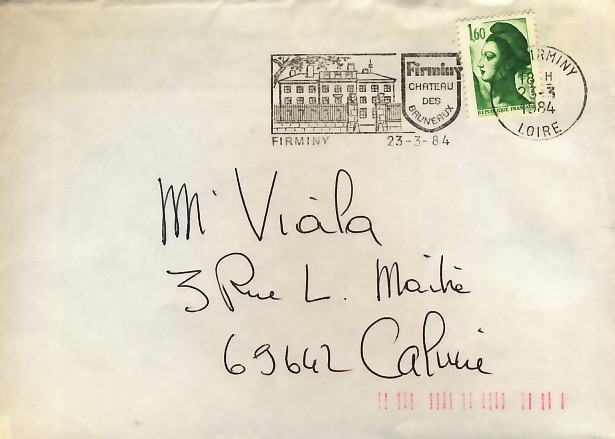 Firminy
CHATEAU
DES
BRUNEAUX
FIRMINY 23-3-84
1,60
REPUBLIQUE FRANCAISE
FIRMINY
18 H
23-3
1984
LOIRE
Mr Viala
3 Rue L. Maitre
69642 Caluire